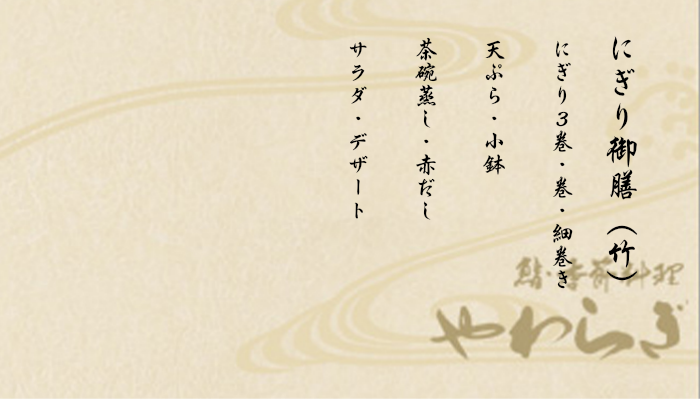 にぎり御膳（竹）
にぎり３巻・巻・細巻き
天ぷら・小鉢
茶碗蒸し・赤だし
サラダ・デザート
鮨・季節料理
やわらぎ